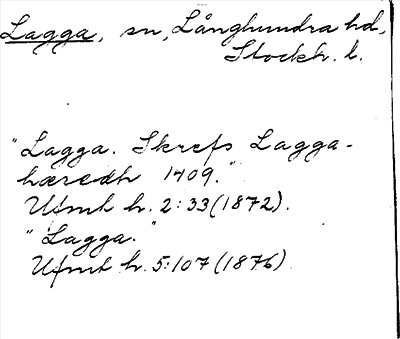 Lagga, sn, Långhundra hd,
Stockh. l.
"Lagga. Skrefs Lagga-
hæredh 1409."
Ufmt h. 2:33 (1872).
"Lagga."
Ufmt h. 5:107 (1876).